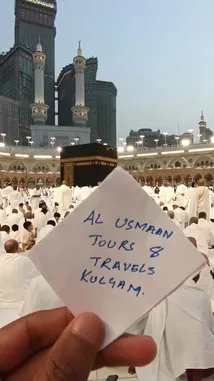 AL USMAAN
TOURS &
TRAVELS
KULGAM.